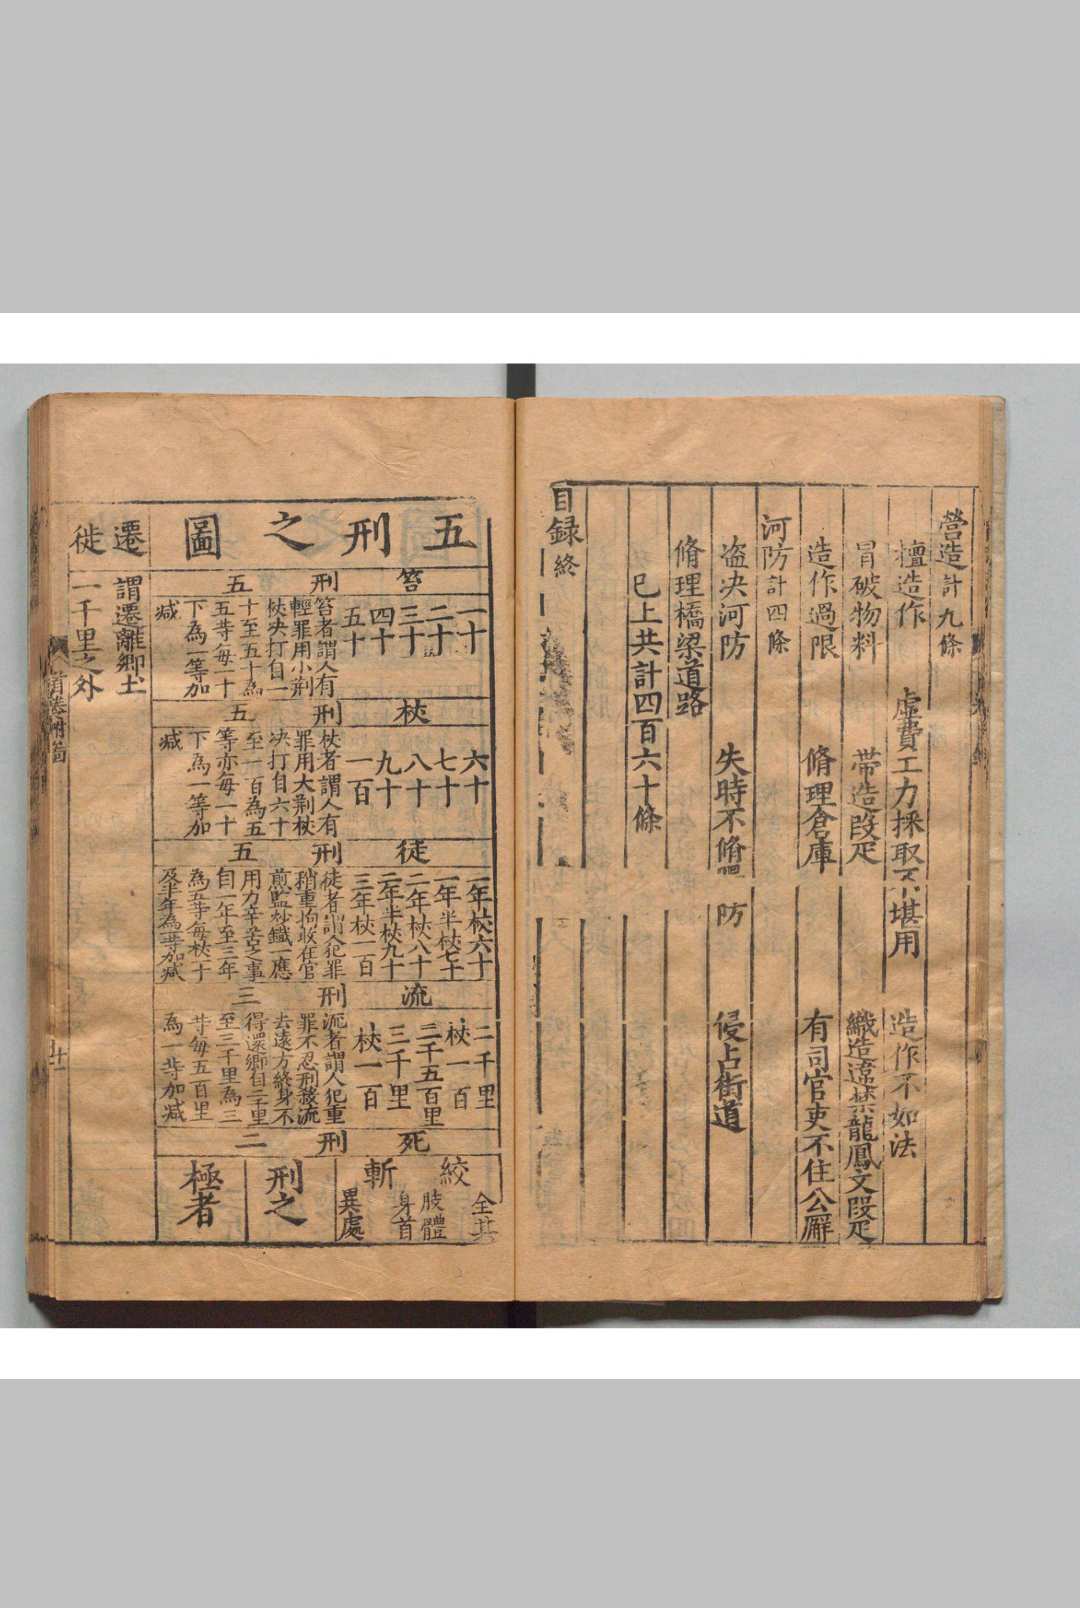 營造計九條
擅造作 虛費工力採取不堪用 造作不如法
冒破物料 帶造段疋 織造違禁龍鳳文段疋
造作過限 脩理倉庫 有司官吏不住公廨
河防計四條
盗决河防 失時不脩 防 侵占街道
脩理橋梁道路
已上共計四百六十條
目録終
五刑之圖
笞刑五
一十
二十
三十
四十
五十
笞者謂人有
輕罪用小荆
杖决打自一
十至五十為
五等每一十
下為一等加
減
杖刑五
六十
七十
八十
九十
一百
杖者謂人有
罪用大荆杖
决打自六十
至一百為五
等亦每一十
下為一等加
減
徒刑五
一年杖六十
一年半杖七十
二年杖八十
二年半杖九十
三年杖一百
徒者謂人犯罪
稍重拘收在官
煎監炒鐵一應
用力辛苦之事
自一年至三年
為五等每杖一十
及半年為一等加減
流刑三
二千里
杖一百
二千五百里
三千里
杖一百
流者謂人犯重
罪不忍刑殺流
去遠方終身不
得還鄉自二千里
至三千里為三
等每五百里
為一等加減
死刑二
絞
全其
肢體
斬
身首
異處
刑之
極者
遷徙
謂遷離鄉土
一千里之外
首卷附圖
十一